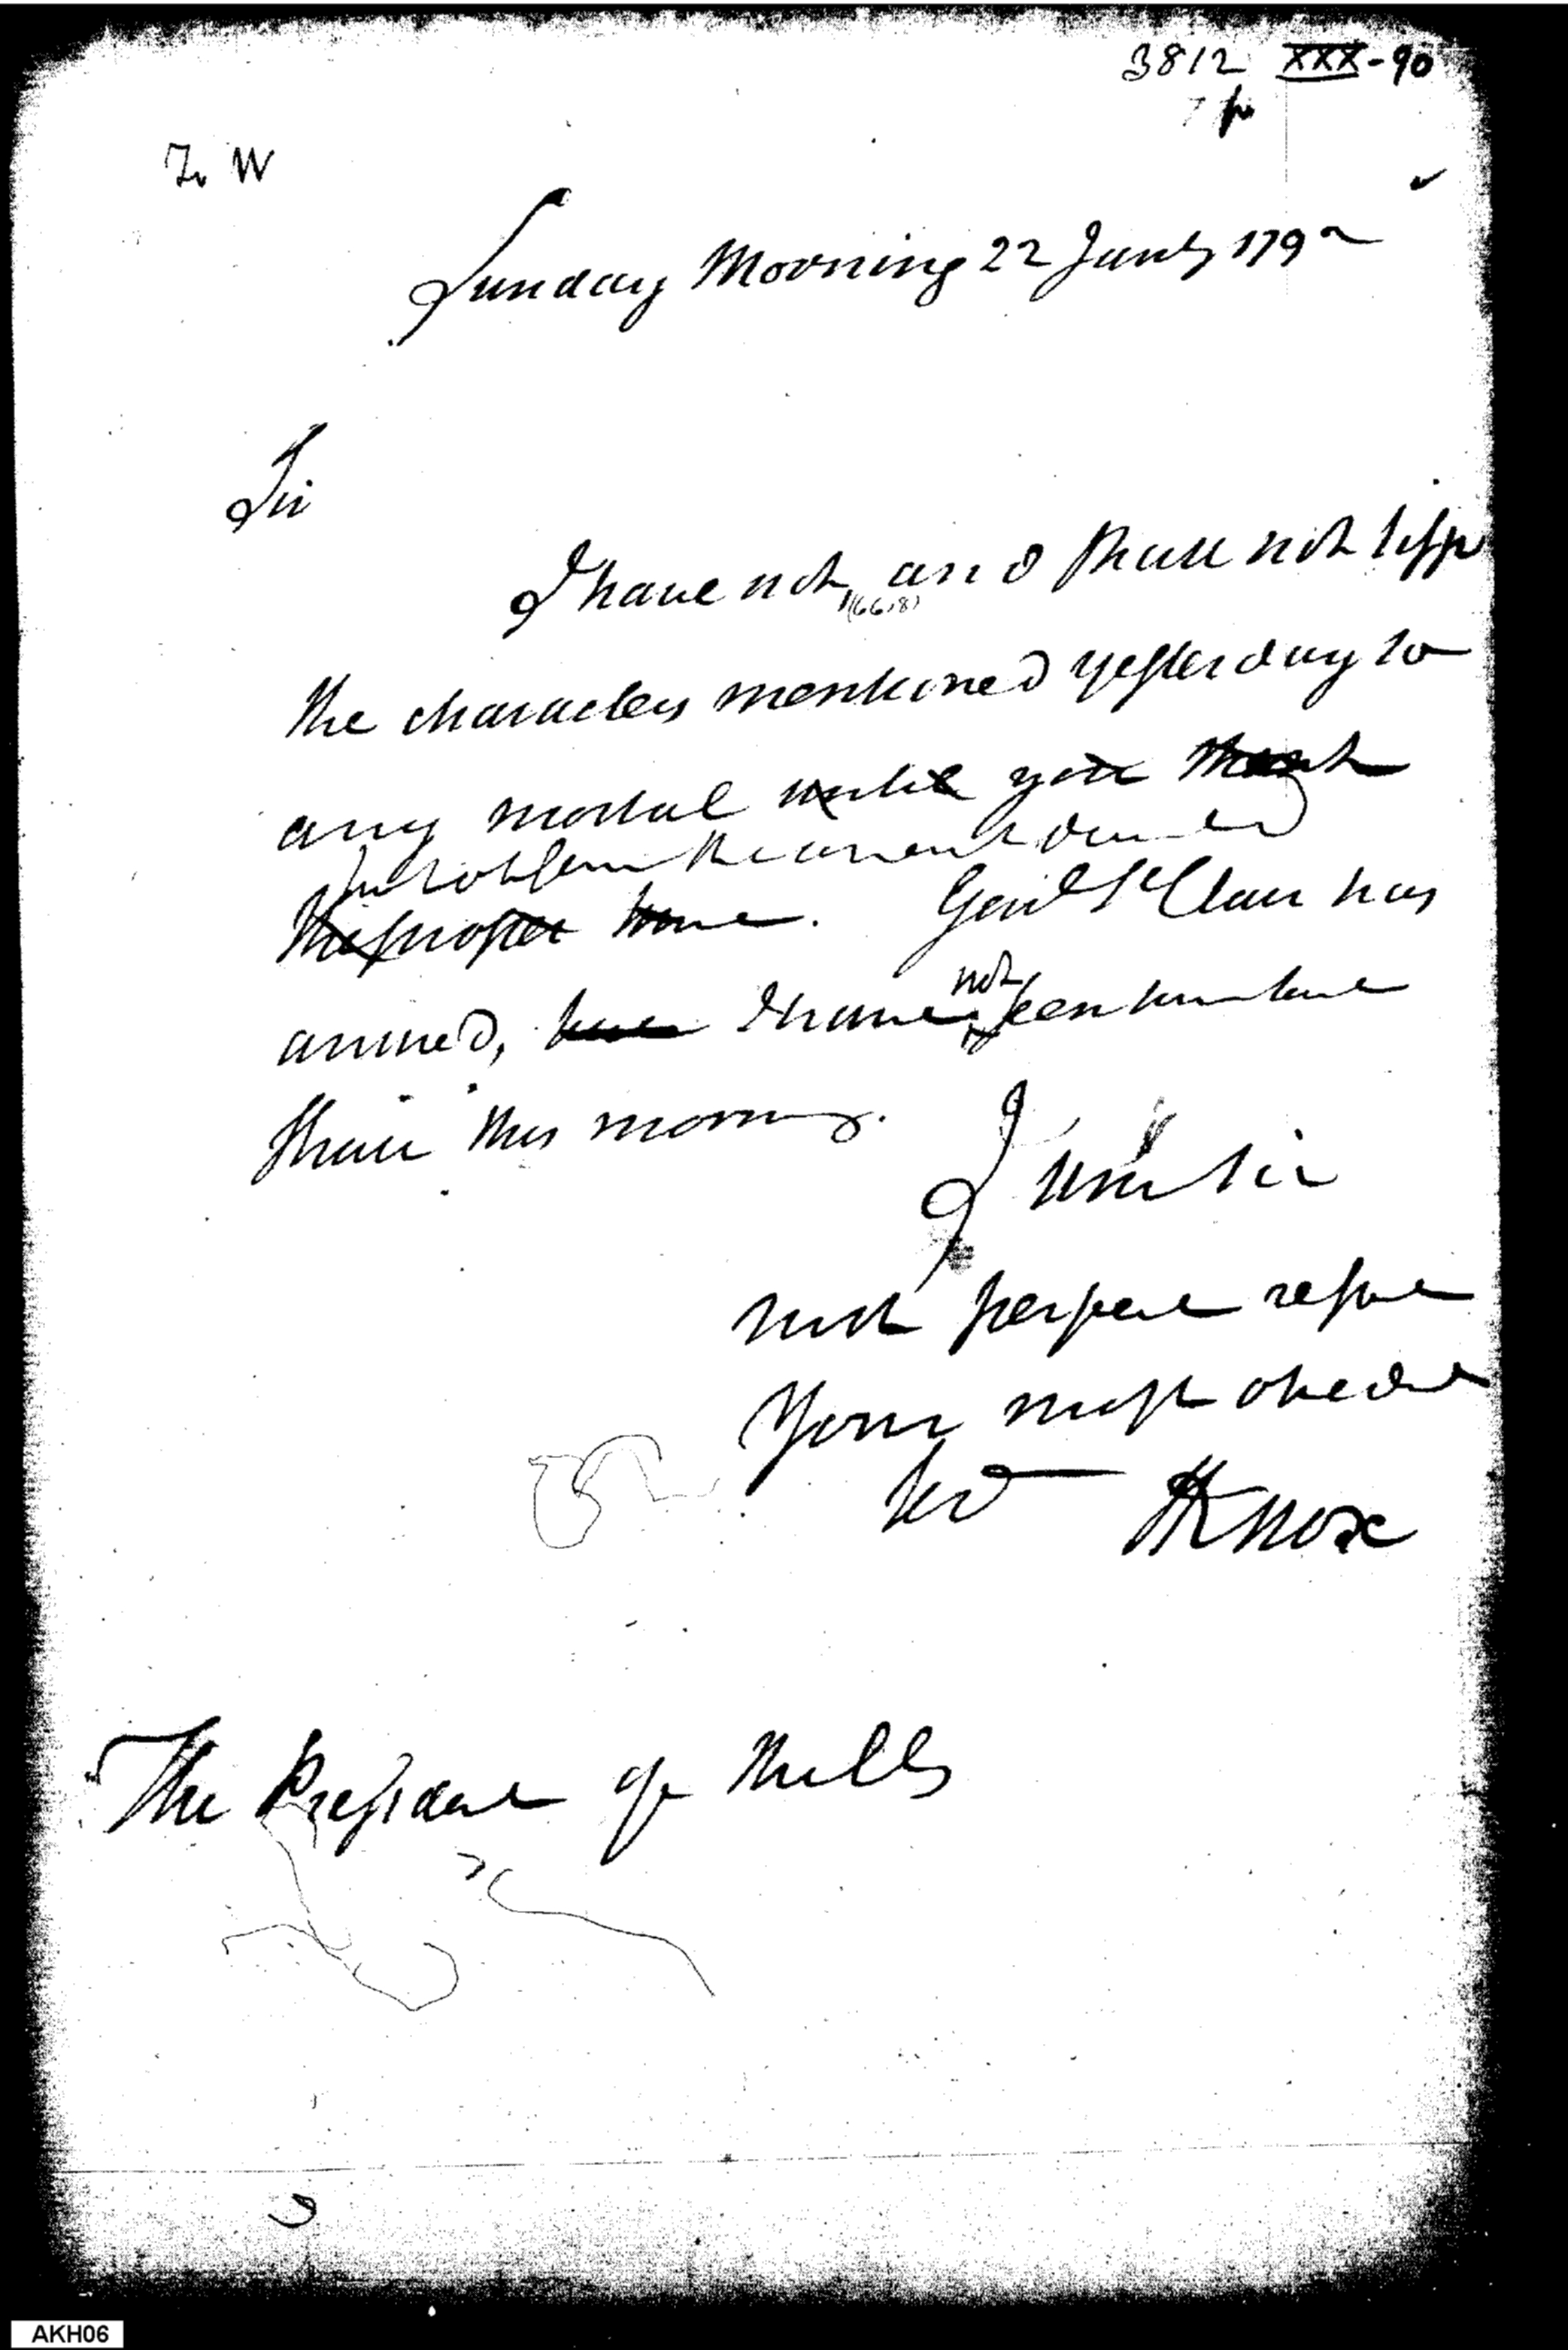 3812 XXX-90
To W
Sunday Morning 22 Jany 1792
Sir
I have not, and shall not lisp
the characters mentioned yesterday to
any mortal until you think
the proper time. Genl St Clair has
arrived, I have not seen him but
shall this morning.
I am sir
with perfect respect
Your most obedient
sert HKnox
The President of the US
AKH06